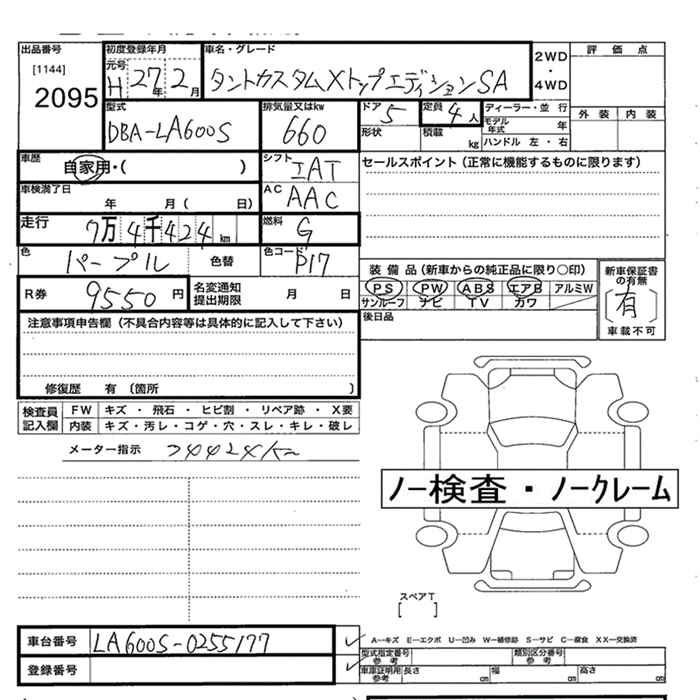 出品番号
[1144]
2095
初度登録年月
元号 H 27年 2月
車名・グレード
タントカスタムXトップエディションSA
2WD
・
4WD
評価点
外装 内装
型式
DBA-LA600S
排気量又はkw
660
ドア 5
形状
定員 4人
積載 kg
ディーラー・並行
モデル年式 年
ハンドル 左・右
車歴
自家用・( )
シフト
IAT
セールスポイント (正常に機能するものに限ります)
車検満了日
年 月( 日)
AC
AAC
走行
7万4千424km
燃料
G
色
パープル 色替
色コード
P17
R券
9550円
名変通知
提出期限
月 日
装備品 (新車からの純正品に限り〇印)
PS PW ABS エアB アルミW
サンルーフ ナビ TV カワ
新車保証書
の有無
[有]
車載不可
後日品
注意事項申告欄 (不具合内容等は具体的に記入して下さい)
修復歴 有 〔箇所 〕
検査員
記入欄
FW キズ ・ 飛石 ・ ヒビ割 ・ リペア跡 ・ X要
内装 キズ・汚レ・コゲ・穴・スレ・キレ・破レ
メーター指示 74424km
ノー検査・ノークレーム
スペアT
[ ]
車台番号 LA600S-0255177
登録番号
A―キズ E―エクボ U―凹み W―補修跡 S―サビ C―腐食 XX―交換済
型式指定番号
参考
類別区分番号
参考
車庫証明用
参考
長さ cm 幅 cm 高さ cm